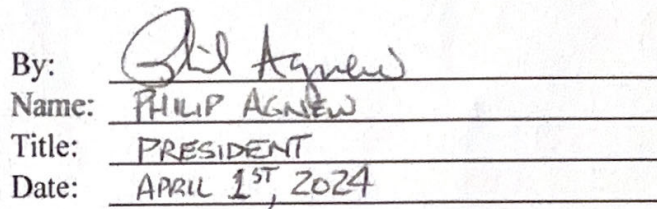 By: Phil Agnew
Name: PHILIP AGNEW
Title: PRESIDENT
Date: APRIL 1ST, 2024